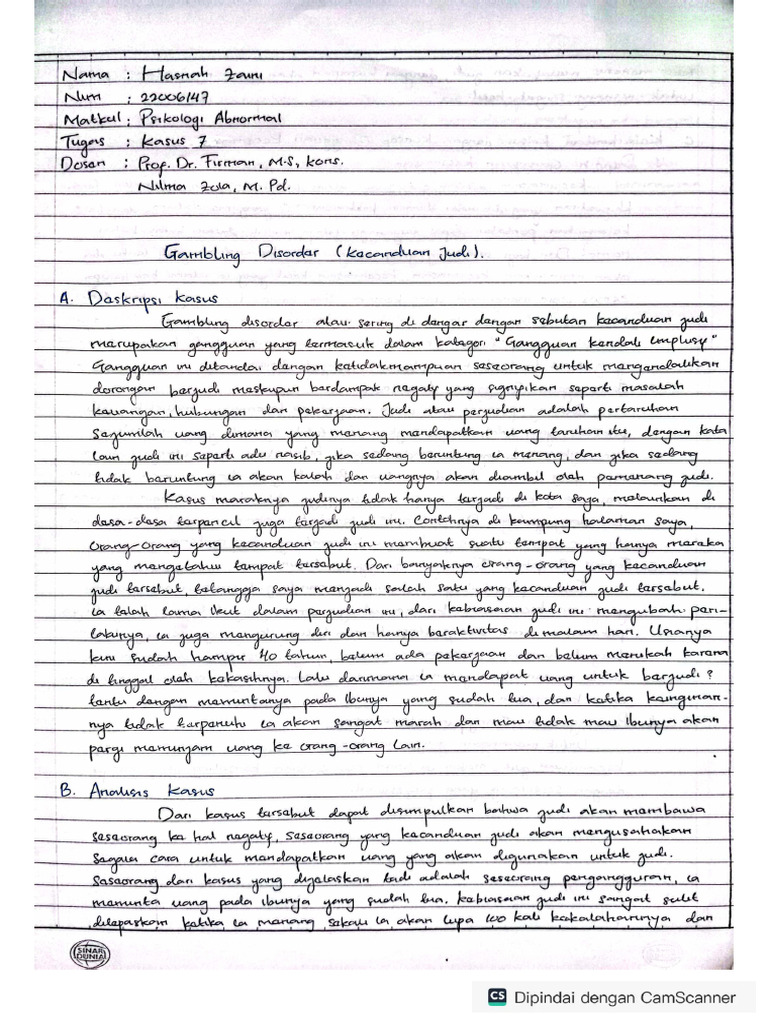 Nama : Hasnah Zaini
Nim : 22006147
Matkul : Psikologi Abnormal
Tugas : Kasus 7
Dosen : Prof. Dr. Firman, M.S, kons.
Nilma Zola, M. Pd.
Gambling Disorder (Kecanduan Judi).
A. Deskripsi Kasus
Gambling disorder atau sering di dengar dengan sebutan kecanduan judi
merupakan gangguan yang termasuk dalam kategori "Gangguan kendali implusif"
Gangguan ini ditandai dengan ketidakmampuan seseorang untuk mengendalikan
dorongan berjudi meskipun berdampak negatif yang signifikan seperti masalah
keuangan, hubungan dan pekerjaan. Judi atau perjudian adalah pertaruhan
Sejumlah uang dimana yang menang mendapatkan uang taruhan itu, dengan kata
lain judi ini seperti adu nasib, jika sedang beruntung ia menang, dan jika sedang
tidak beruntung ia akan kalah dan uangnya akan diambil oleh pemenang judi.
Kasus maraknya judinya tidak hanya terjadi di kota saja, melainkan di
desa-desa terpencil juga terjadi judi ini. Contohnya di kampung halaman saya,
orang-orang yang kecanduan judi ini membuat suatu tempat yang hanya mereka
yang mengetahui tempat tersebut. Dari banyaknya orang-orang yang kecanduan
judi tersebut, tetangga saya menjadi salah satu yang kecanduan judi tersebut.
ia telah lama ikut dalam perjudian ini, dari kebiasaan judi ini mengubah peri-
lakunya, ia juga mengurung diri dan hanya beraktivitas dimalam hari. Usianya
kini sudah hampir 40 tahun, belum ada pekerjaan dan belum menikah karena
di tinggal oleh kekasihnya. Lalu darimana ia mendapat uang untuk berjudi?
tentu dengan memintanya pada ibunya yang sudah tua, dan ketika keinginan-
nya tidak terpenuhi ia akan sangat marah dan mau tidak mau ibunya akan
pergi meminjam uang ke orang-orang lain.
B. Analisis Kasus
Dari kasus tersebut dapat disimpulkan bahwa judi akan membawa
seseorang ke hal negatif, seseorang yang kecanduan judi akan mengusahakan
segala cara untuk mendapatkan uang yang akan digunakan untuk judi.
Seseorang dari kasus yang dijelaskan tadi adalah seseorang pengangguran, ia
meminta uang pada ibunya yang sudah tua. kebiasaan judi ini sangat sulit
dilepaskan ketika ia menang sekali ia akan lupa 100 kali kekalahannya dan
SINAR
DUNIA
CS Dipindai dengan CamScanner